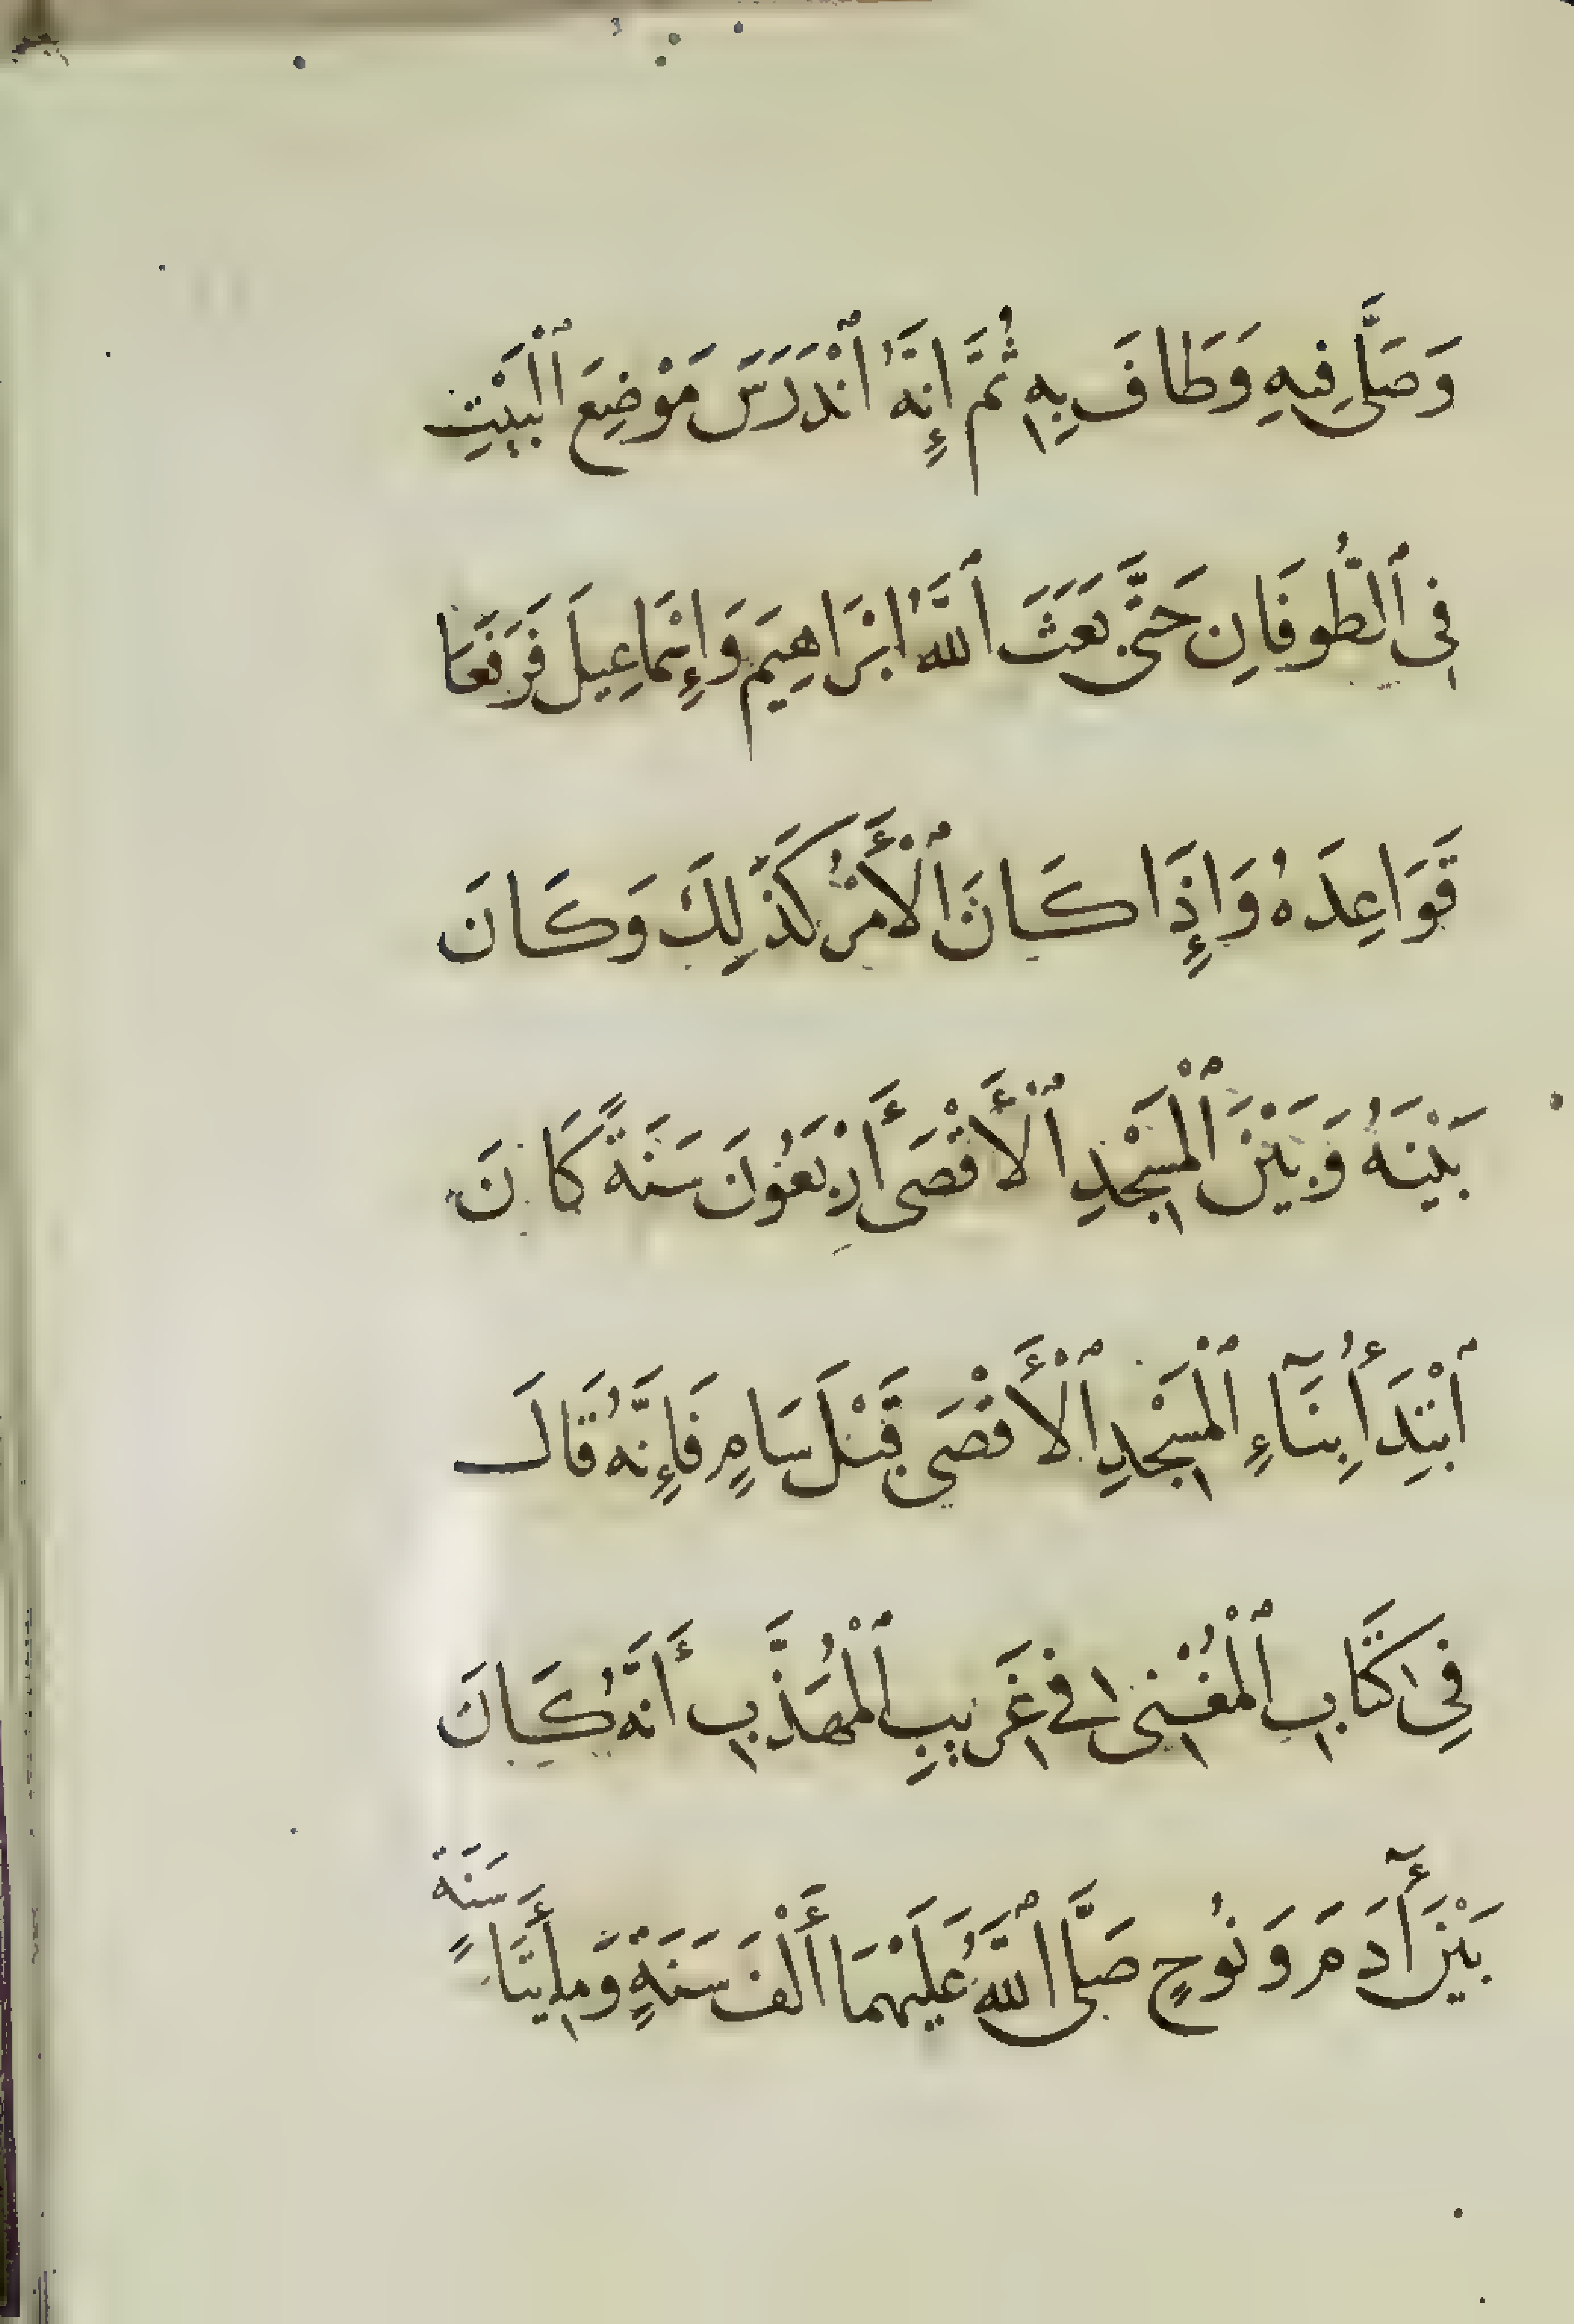 وَصَلَّى فِيهِ وَطَافَ بِهِ ثُمَّ إِنَّهُ ٱنْدَرَسَ مَوْضِعَ ٱلْبَيْتِ
فِي ٱلطُّوفَانِ حَتَّى بَعَثَ ٱللَّهُ ابْرَاهِيمَ وَإِسْمَاعِيلَ فَرَفَعَا
قَوَاعِدَهُ وَإِذَا كَانَ ٱلْأَمْرُ كَذَلِكَ وَكَانَ
بَيْنَهُ وَبَيْنَ ٱلْمَسْجِدِ ٱلْأَقْصَى أَرْبَعُونَ سَنَةً كَانَ
ٱبْتِدَأُ بِنَآءِ ٱلْمَسْجِدِ ٱلْأَقْصَى قَبْلَ سَامٍ فَإِنَّهُ قَالَ
فِي كِتَابِ ٱلْمُغْنِي فِي غَرِيبِ ٱلْمُهَذَّبِ أَنَّهُ كَانَ
بَيْنَ أٓدَمَ وَنُوحٍ صَلَّى ٱللَّهُ عَلَيْهِمَا أَلْفَ سَنَةٍ وَمِايَتَا سَنَةٍ